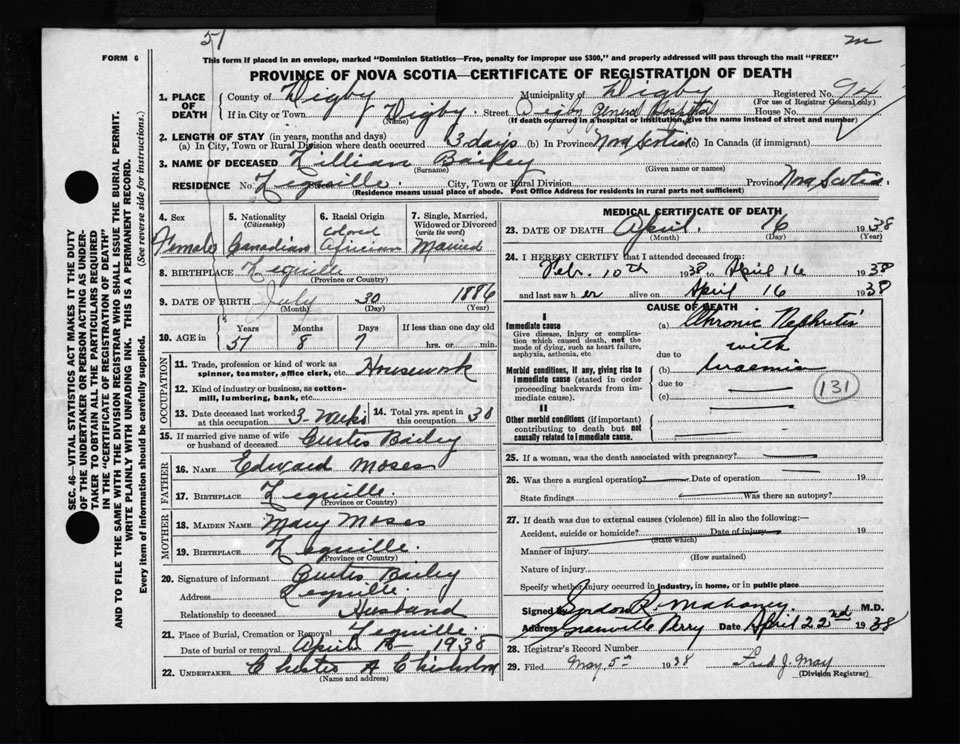 51
m
FORM 6
This form if placed in an envelope, marked "Dominion Statistics—Free, penalty for improper use $300," and properly addressed will pass through the mail "FREE"
PROVINCE OF NOVA SCOTIA—CERTIFICATE OF REGISTRATION OF DEATH
1. PLACE OF DEATH
County of Digby Municipality of Digby Registered No. 94
(For use of Registrar General only)
If in City or Town Digby Street Digby General Hospital House No.
(Name) (If death occurred in a hospital or institution, give the name instead of street and number)
2. LENGTH OF STAY (in years, months and days)
(a) In City, Town or Rural Division where death occurred 3 days (b) In Province Nova Scotia (c) In Canada (if immigrant)
3. NAME OF DECEASED Lillian Bailey
(Surname) (Given name or names)
RESIDENCE No. Lequille City, Town or Rural Division Province Nova Scotia
(Residence means usual place of abode. Post Office Address for residents in rural parts not sufficient)
SEC. 46—VITAL STATISTICS ACT MAKES IT THE DUTY
OF THE UNDERTAKER OR PERSON ACTING AS UNDER-
TAKER TO OBTAIN ALL THE PARTICULARS REQUIRED
IN THE "CERTIFICATE OF REGISTRATION OF DEATH"
AND TO FILE THE SAME WITH THE DIVISION REGISTRAR WHO SHALL ISSUE THE BURIAL PERMIT.
WRITE PLAINLY WITH UNFADING INK. THIS IS A PERMANENT RECORD.
Every item of information should be carefully supplied. (See reverse side for instructions.)
4. Sex
5. Nationality (Citizenship)
6. Racial Origin
7. Single, Married, Widowed or Divorced (write the word)
Female Canadian colored African Married
8. BIRTHPLACE Lequille
(Province or Country)
9. DATE OF BIRTH July 30 1886
(Month) (Day) (Year)
10. AGE in Years Months Days If less than one day old
51 8 7 hrs. or min.
OCCUPATION
11. Trade, profession or kind of work as
spinner, teamster, office clerk, etc. Housework
12. Kind of industry or business, as cotton-
mill, lumbering, bank, etc.
13. Date deceased last worked at this occupation 3 weeks 14. Total yrs. spent in this occupation 30
15. If married give name of wife or husband of deceased Curtis Bailey
FATHER
16. NAME Edward Moses
17. BIRTHPLACE Lequille
(Province or Country)
MOTHER
18. MAIDEN NAME Mary Moses
19. BIRTHPLACE Lequille
(Province or Country)
20. Signature of informant Curtis Bailey
Address Lequille
Relationship to deceased Husband
21. Place of Burial, Cremation or Removal Lequille
Date of burial or removal April 1938
22. UNDERTAKER Charles A Chisholm
(Name and address)
MEDICAL CERTIFICATE OF DEATH
23. DATE OF DEATH April 16 1938
(Month) (Day) (Year)
24. I HEREBY CERTIFY that I attended deceased from:
Feb. 10th 1938 to April 16 1938
and last saw her alive on April 16 1938
CAUSE OF DEATH
I
Immediate cause
Give disease, injury or complica-
tion which caused death, not the
mode of dying, such as heart failure,
asphyxia, asthenia, etc
(a) Chronic Nephritis
with
due to
Morbid conditions, if any, giving rise to
immediate cause (stated in order
proceeding backwards from im-
mediate cause).
(b) Uraemia
due to
131
(c)
II
Other morbid conditions (if important)
contributing to death but not
causally related to immediate cause.
25. If a woman, was the death associated with pregnancy?
26. Was there a surgical operation? Date of operation 19
State findings Was there an autopsy?
27. If death was due to external causes (violence) fill in also the following:—
Accident, suicide or homicide? Date of injury 19
(State which)
Manner of injury
(How sustained)
Nature of injury
Specify whether injury occurred in industry, in home, or in public place
Signed by Gordon R. Mahoney M.D.
Address Granville Ferry Date April 22nd 1938
28. Registrar's Record Number
29. Filed May 5th 1938 Fred J. May
(Division Registrar)